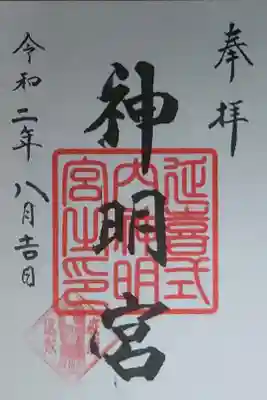 奉拝
神明宮
延喜式
内神明
宮之印
令和二年八月吉日